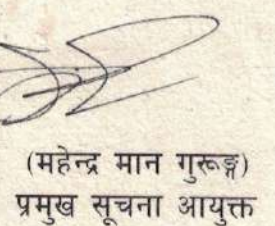 (महेन्द्र मान गुरूङ्ग)
प्रमुख सूचना आयुक्त